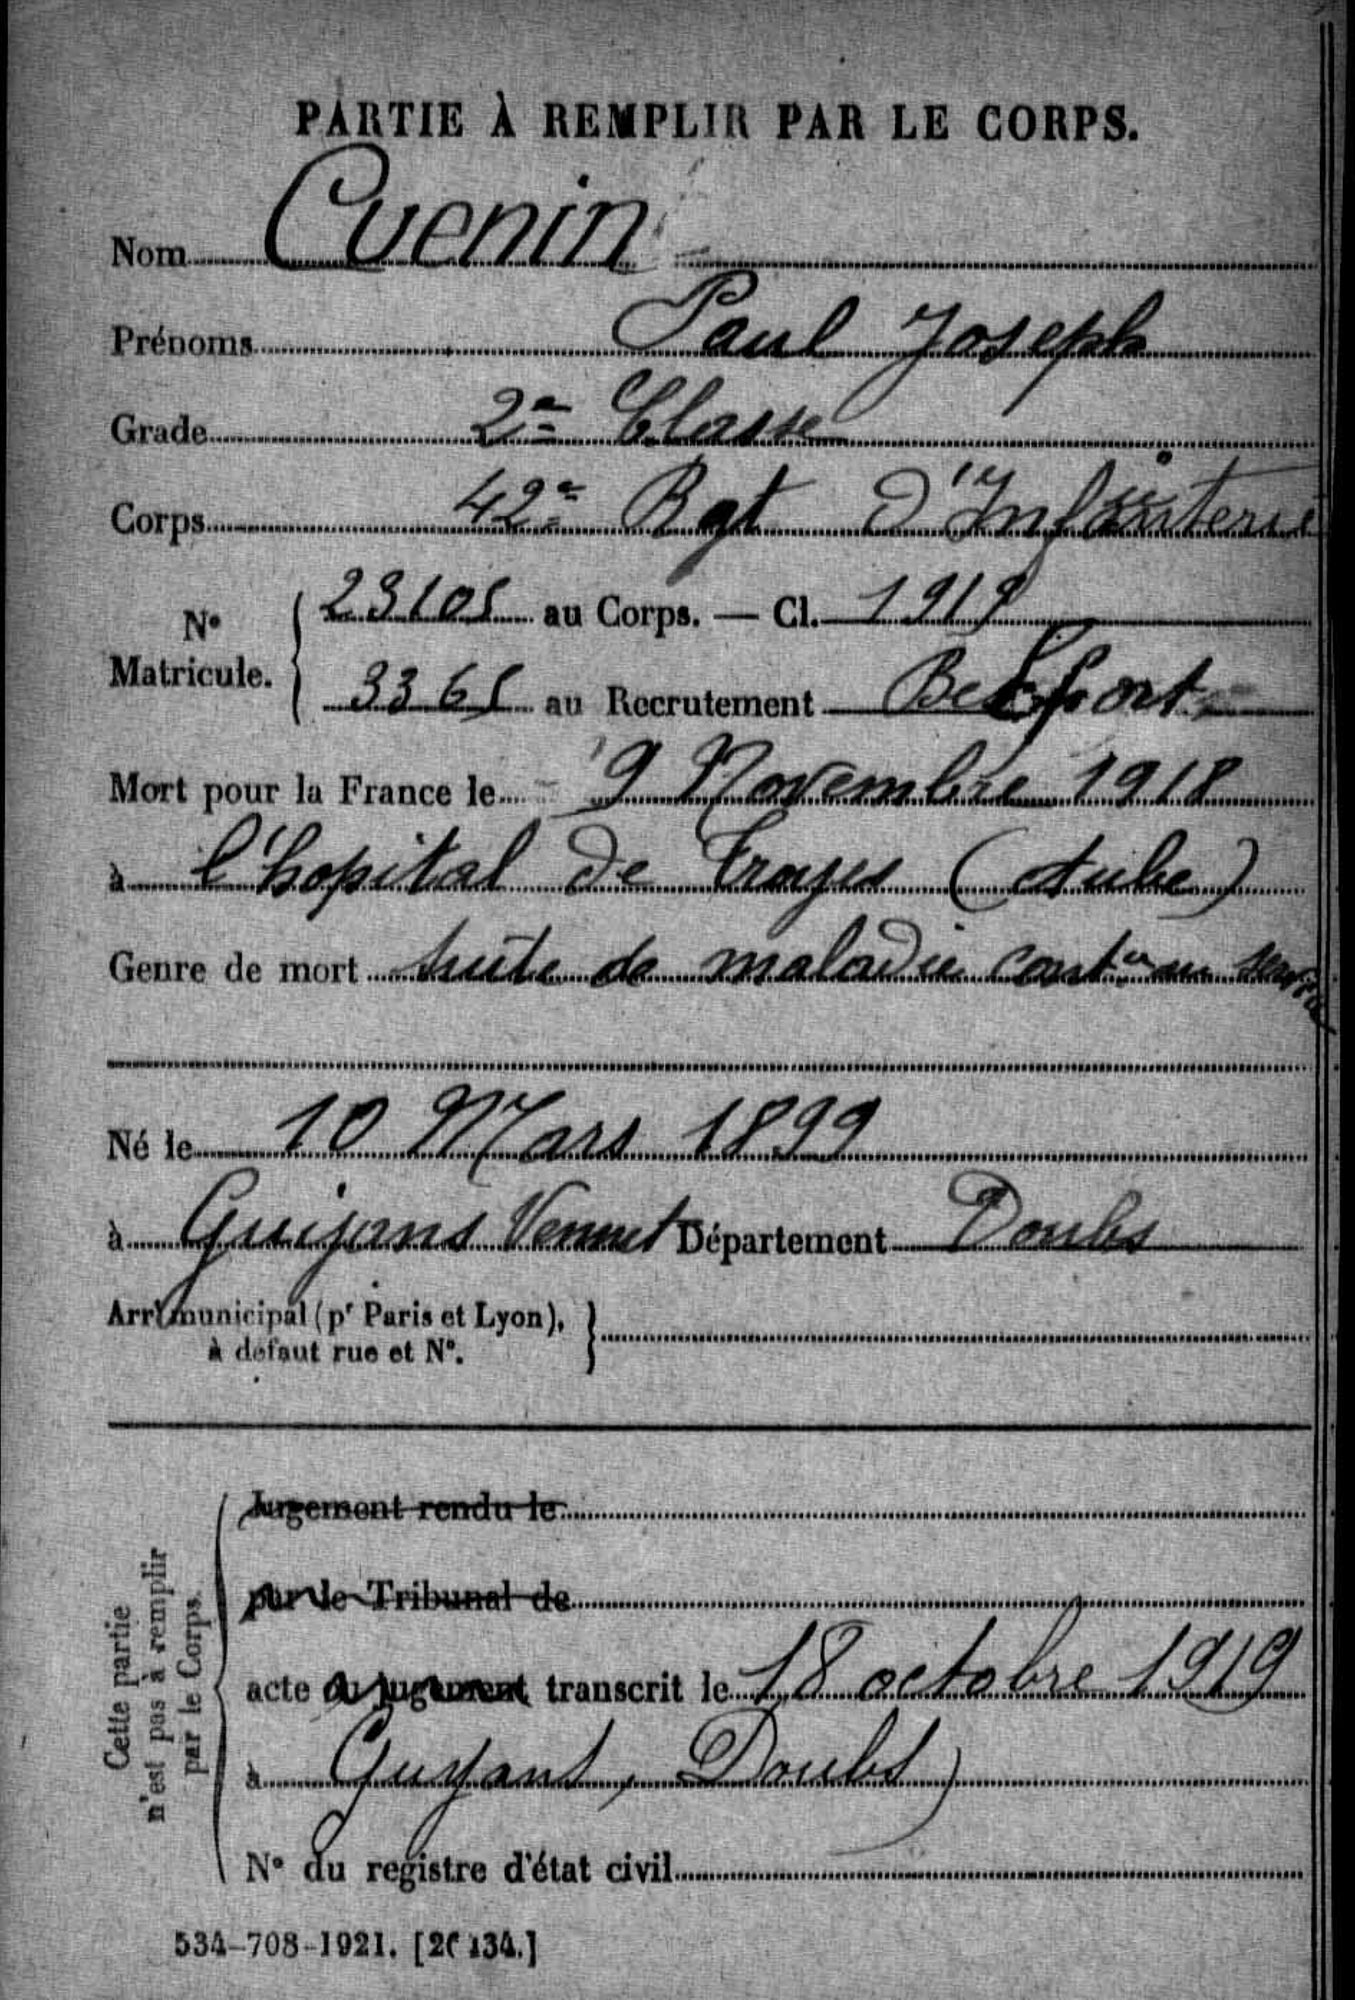 PARTIE À REMPLIR PAR LE CORPS.
Nom Cuenin
Prénoms Paul Joseph
Grade 2e Classe
Corps 42e Rgt d'Infanterie
No Matricule. { 23105 au Corps. — Cl. 1919
3365 au Recrutement Belfort
Mort pour la France le 9 Novembre 1918
à l'hopital de Troyes (Aube)
Genre de mort suite de maladie contée au service
Né le 10 Mars 1899
à Guijans Vennes Département Doubs
Arrt municipal (pr Paris et Lyon), }
à défaut rue et No.
Cette partie
n'est pas à remplir
par le Corps.
Jugement rendu le
par le Tribunal de
acte ou jugement transcrit le 18 octobre 1919
à Guyans, Doubs)
No du registre d'état civil
534-708-1921. [26134.]